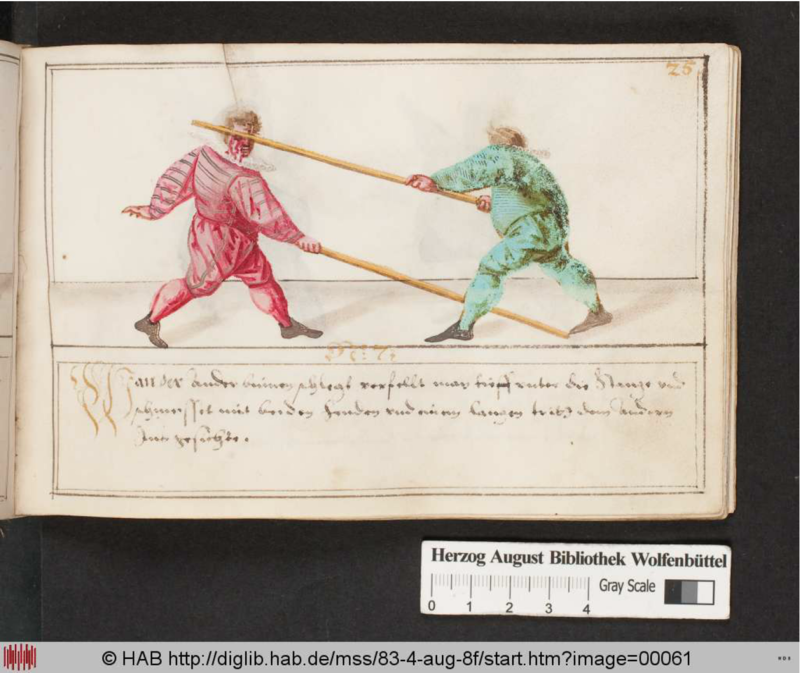 25
No: 7.
Wan der ander binnen schlegt verfellt mar tieff unter die Stange und
schmeisset mit beiden henden und einem langen tritt dem andern
ins gesichte.
Herzog August Bibliothek Wolfenbüttel
Gray Scale
0 1 2 3 4
© HAB http://diglib.hab.de/mss/83-4-aug-8f/start.htm?image=00061